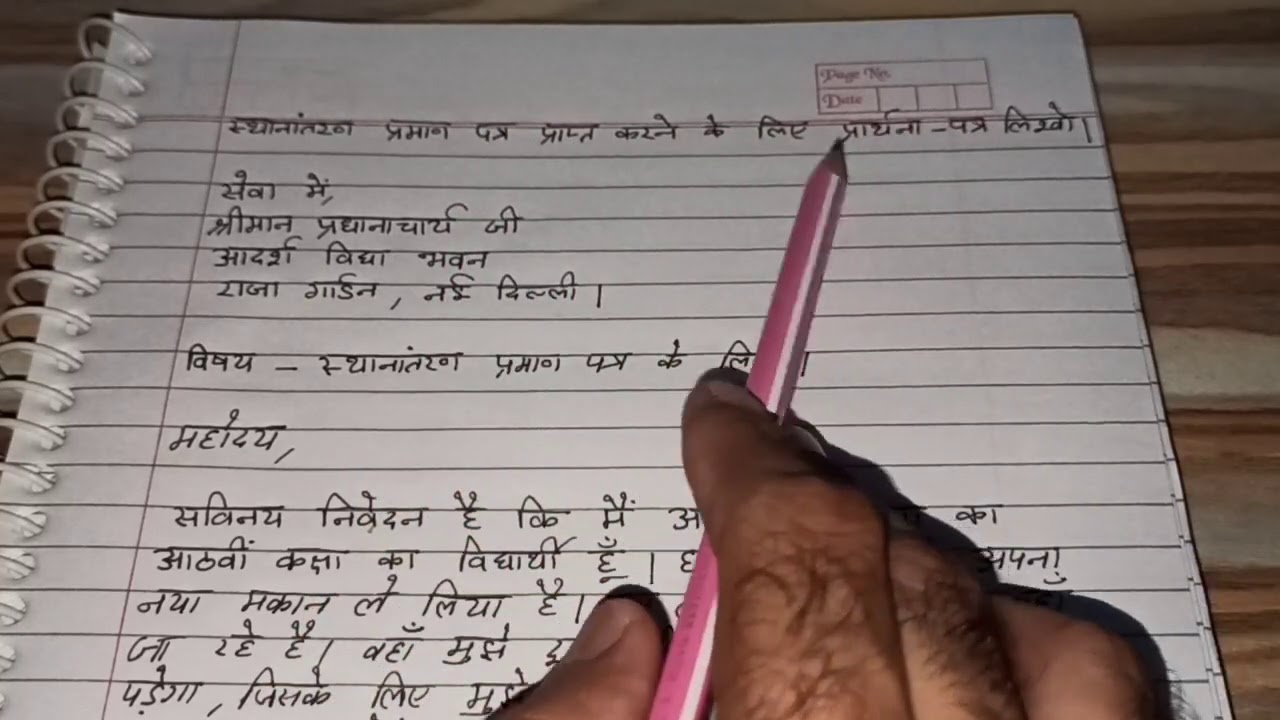 Page No.
Date
स्थानांतरण प्रमाण पत्र प्राप्त करने के लिए प्रार्थना - पत्र लिखो।
सेवा में,
श्रीमान प्रधानाचार्य जी
आदर्श विद्या भवन
राजा गार्डन, नई दिल्ली।
विषय - स्थानांतरण प्रमाण पत्र के
महोदय,
सविनय निवेदन है कि मैं का
आठवीं कक्षा का विद्यार्थी हूँ। अपना
नया मकान ले लिया है।
जा रहे हैं। वहाँ मुझे
पड़ेगा, जिसके लिए मुझे